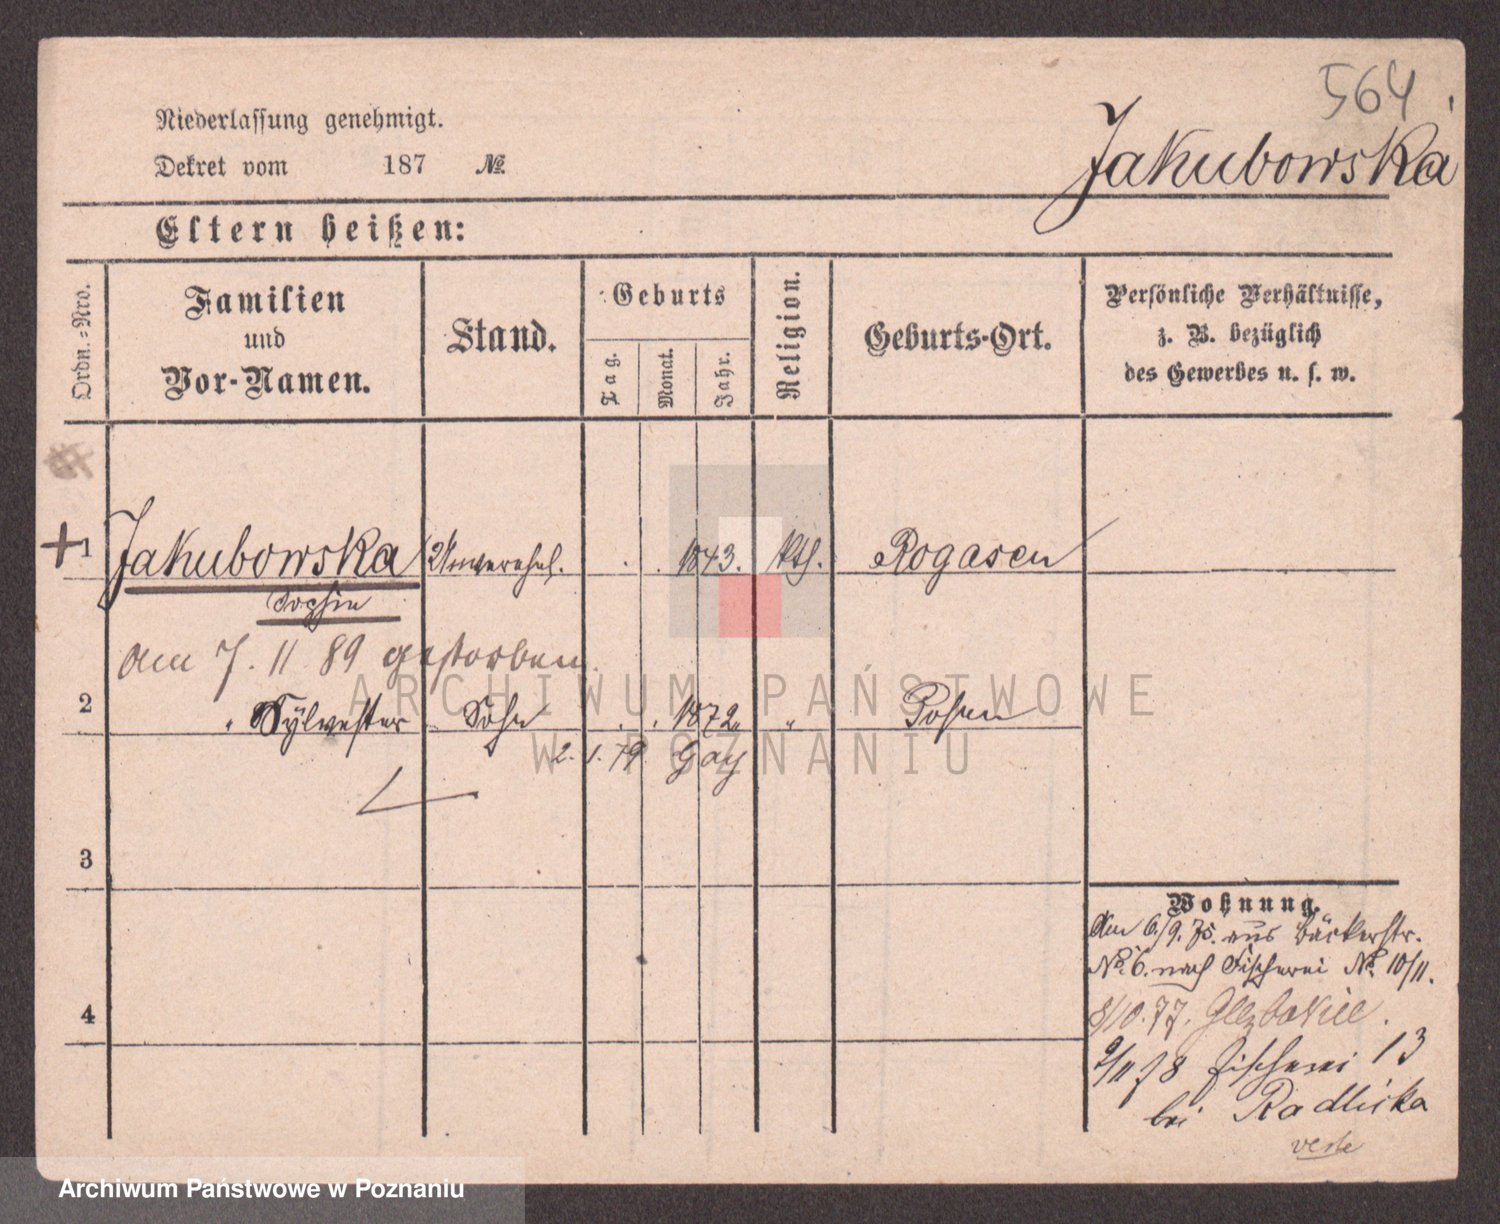 564
Niederlassung genehmigt.
Jakubowska
Dekret vom 187 №
Eltern heißen:
Ordn.-Nro.
Familien
und
Vor-Namen.
Stand.
Geburts
Tag.
Monat.
Jahr.
Religion.
Geburts-Ort.
Persönliche Verhältnisse,
z. B. bezüglich
des Gewerbes u. s. w.
+ 1 Jakubowska Unverehel. 1843. kth. Rogasen
Sophie
am 7. 11 89 gestorben.
2 " Sylvester Sohn 1872 " Posen
2. 1. 79 Gay
3
4
Wohnung.
Am 6/9. 75. aus Bäckerstr.
No. 6. nach Fischerei No. 10/11.
8/10. 77.
9/11 78 Fischerei 13
bei Radlicka
verte
ARCHIWUM PAŃSTWOWE
W POZNANIU
Archiwum Państwowe w Poznaniu